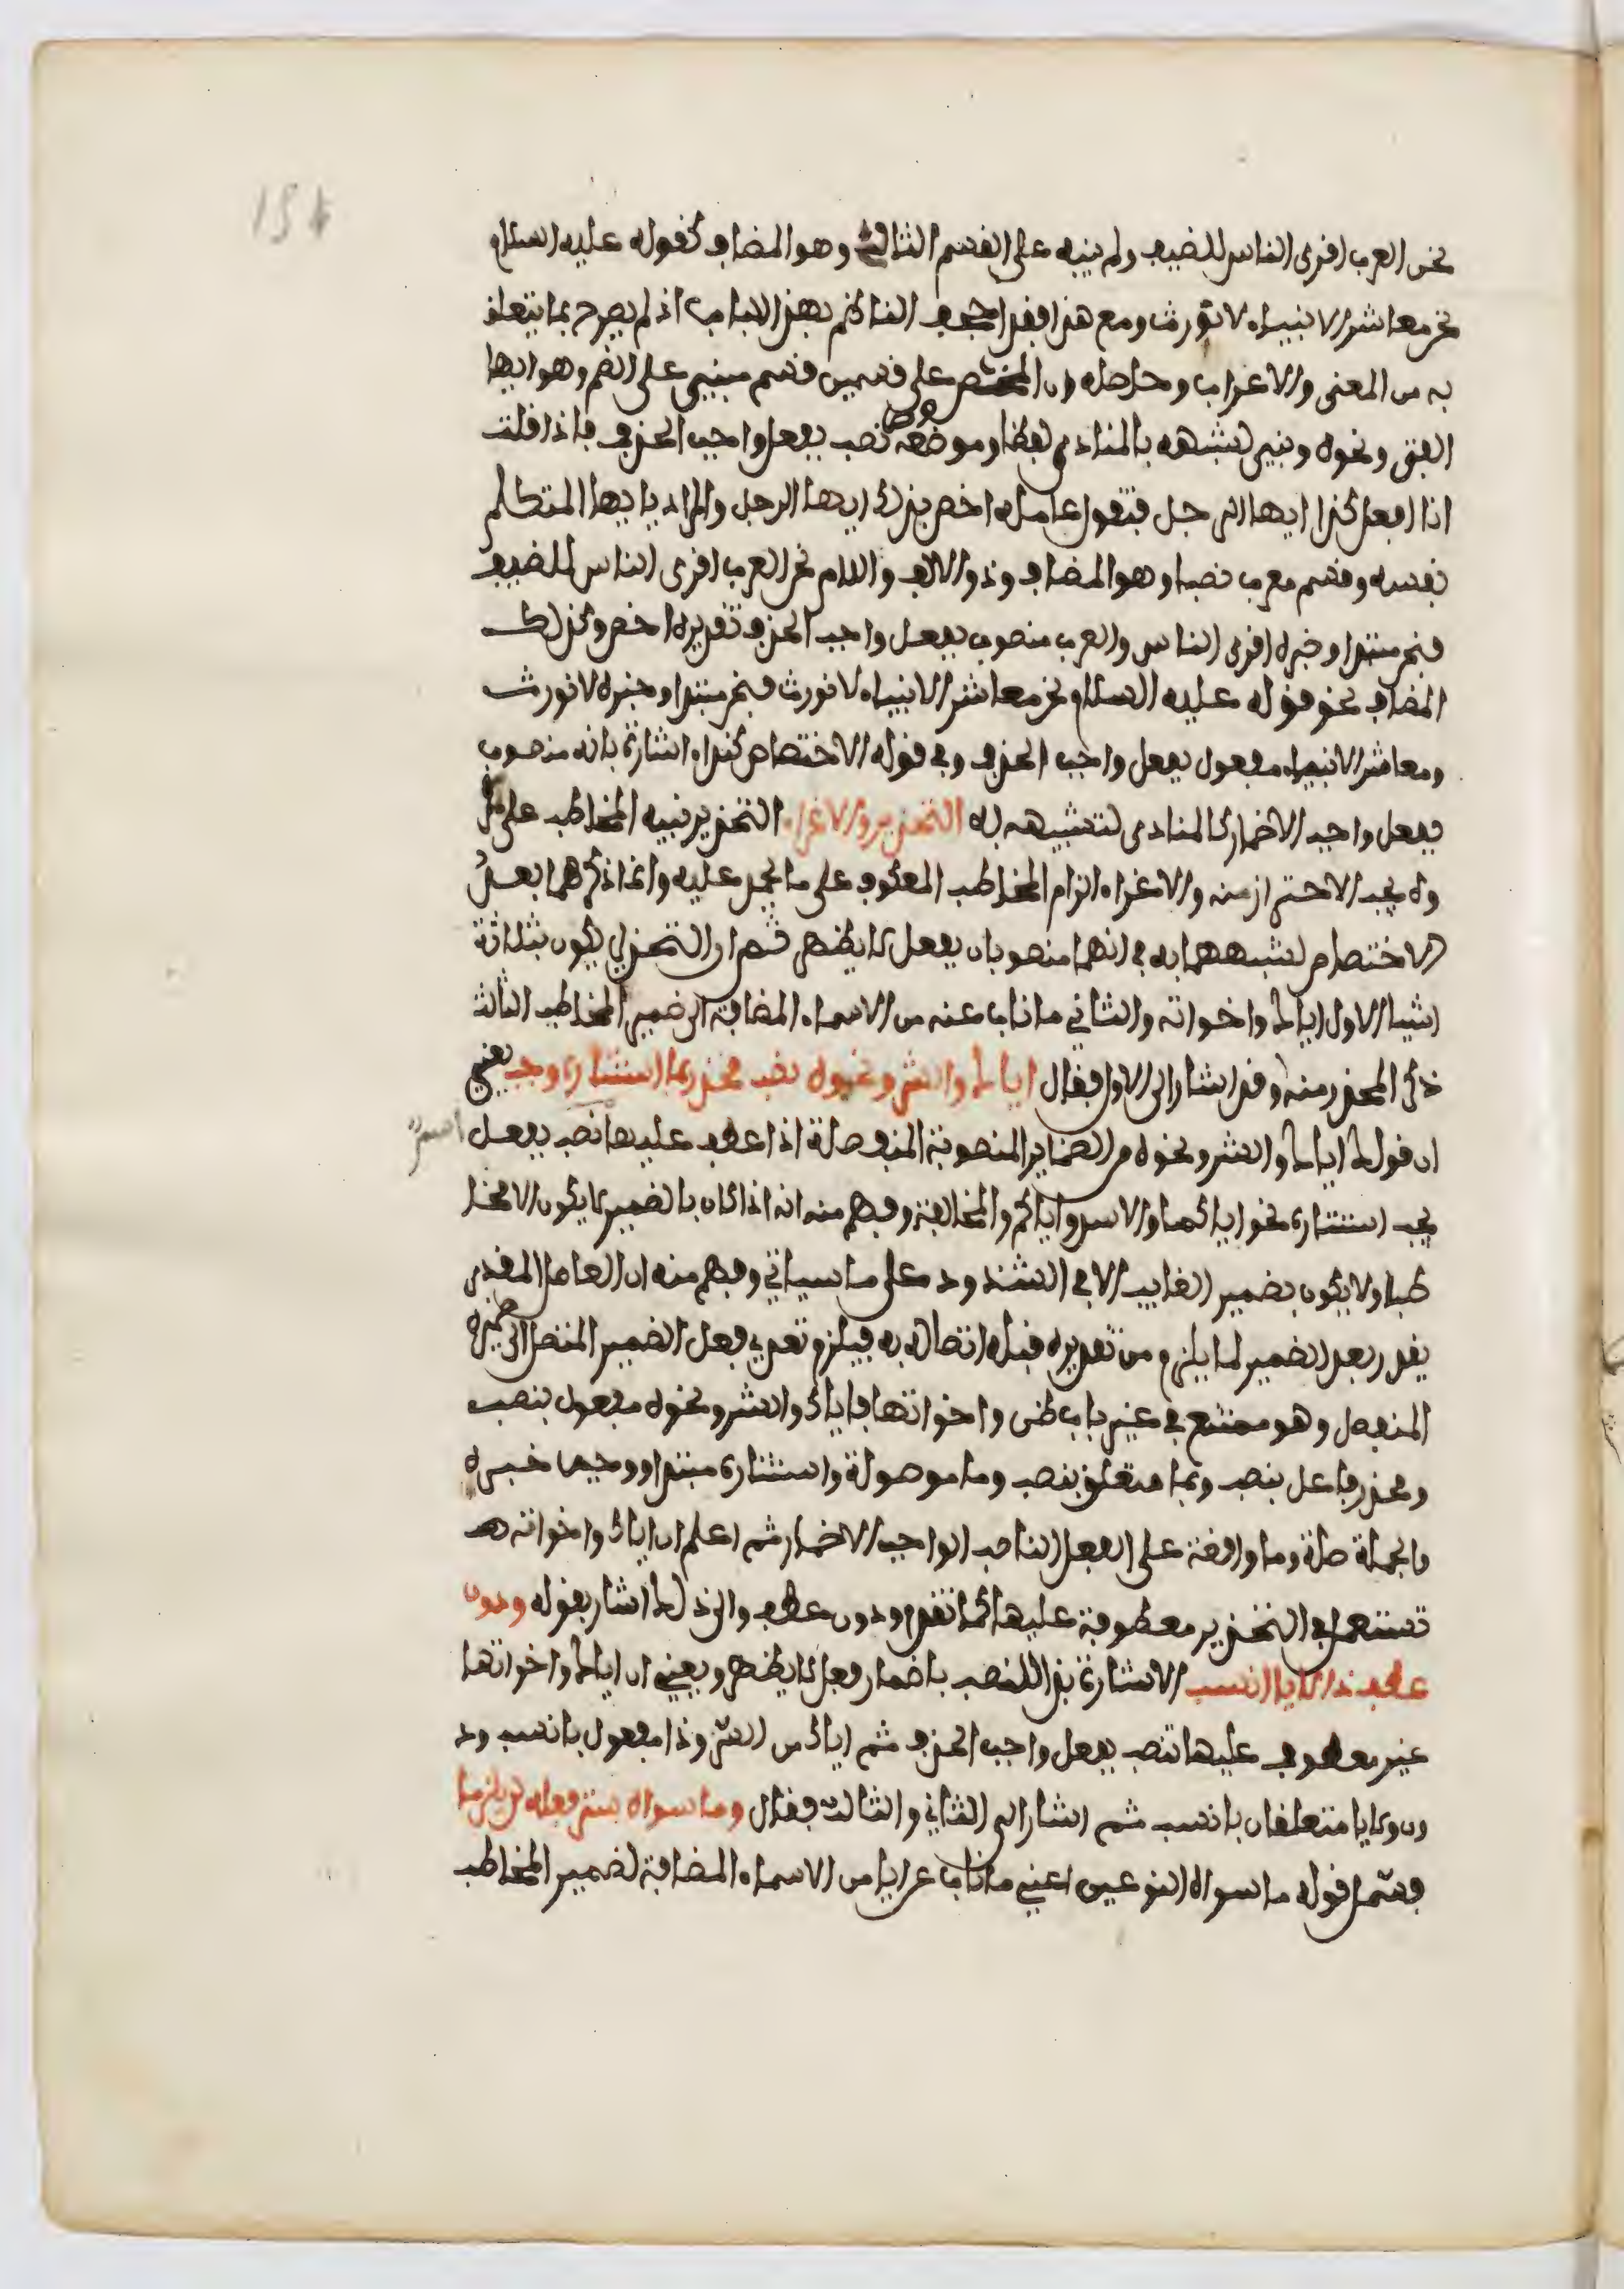 154
نحن العرب اقرى الناس للضيف ولم ينبه على القسم الثالث وهو المضاف كقوله عليه السلام
نحن معاشر الانبياء لا نورث ومع هذا فقد اجحف الناظم بهذا الباب اذ لم يصرح بما يتعلق
به من المعنى والاعراب وحاصله ان المختص على قسمين قسم مبني على الضم وهو ايها
الفتى ونحوه وبني لشبهه بالمنادى لفظا وموضعه نصب بفعل واجب الحذف فاذا قلت
انا افعل كذا ايها الرجل فتقول عامله اخص بذلك ايها الرجل والمراد بايها المتكلم
نفسه وقسم معرب نصبا وهو المضاف وذو الالف واللام نحن العرب اقرى الناس للضيف
فنحن مبتدا وخبره اقرى الناس والعرب منصوب بفعل واجب الحذف تقديره اخص وكذلك
المضاف نحو قوله عليه السلام نحن معاشر الانبياء لا نورث فنحن مبتدا وخبره لا نورث
ومعاشر الانبياء مفعول بفعل واجب الحذف وفي قوله الاختصاص كنداء اشارة بانه منصوب
بفعل واجب الاضمار كالمنادى لتشبيهه له التحذير والاغراء التحذير تنبيه المخاطب على مكر
وه يجب الاحتراز منه والاغراء الزام المخاطب العكوف على ما يحمد عليه وانما ذكرهما بعد
الاختصاص لشبههما به في انهما منصوبان بفعل لا يظهر ثم ان التحذير يكون بثلاثة
اشيا الاول اياك واخواته والثاني ما ناب عنه من الاسماء المضافة الى ضمير المخاطب الثالث
ذكر المحذر منه وقد اشار الى الاول فقال اياك والشر ونحوه نصب محذر بما استتاره وجب يعني
ان قولك اياك والشر ونحوه من الضماير المنصوبة المنفصلة اذا عطف عليها نصب بفعل
يجب استتاره نحو اياكما والاسد واياكم والمخالفة وفهم منه انه اذا كان بالضمير لا يكون الا مخا
طبا ولا يكون بضمير الغايب الا في الشذوذ على ما سياتي وفهم منه ان العامل المقدر
يقدر بعد الضمير لما يلزم من تقديره قبله اتصاله به فيلزم تعدي فعل الضمير المتصل الى ضميره
المنفصل وهو ممتنع في غير باب ظن واخواتها فاياك والشر ونحوه مفعول بنصب
ومحذر فاعل بنصب وبما متعلق بنصب وما موصولة واستتاره مبتدا ووجب خبره
والجملة صلة وما واقعة على الفعل الناصب الواجب الاضمار ثم اعلم ان اياك واخواته
تستعمل في التحذير معطوفة عليها كما تقدم ودون عطف والى ذلك اشار بقوله ودون
عطف ذا لايا انسب الاشارة بذا للنصب باضمار فعل لا يظهر ويعني ان اياك واخواتها
غير معطوف عليها تنصب بفعل واجب الحذف ثم اياك من الشر وذا مفعول بانسب ود
ون ولايا متعلقان بانسب ثم اشار الى الثاني والثالث فقال وما سواه ستر فعله لن يلزما
فشمل قوله ما سواه النوعين اعني ما ناب عن ايا من الاسماء المضافة لضمير المخاطب